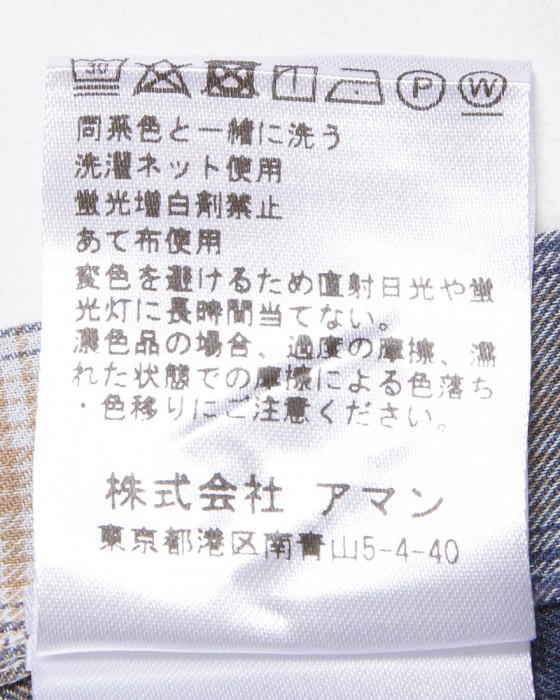 30
P W
同系色と一緒に洗う
洗濯ネット使用
蛍光増白剤禁止
あて布使用
変色を避けるため直射日光や蛍
光灯に長時間当てない。
濃色品の場合、過度の摩擦、濡
れた状態での摩擦による色落ち
・色移りにご注意ください。
株式会社 アマン
東京都港区南青山5-4-40